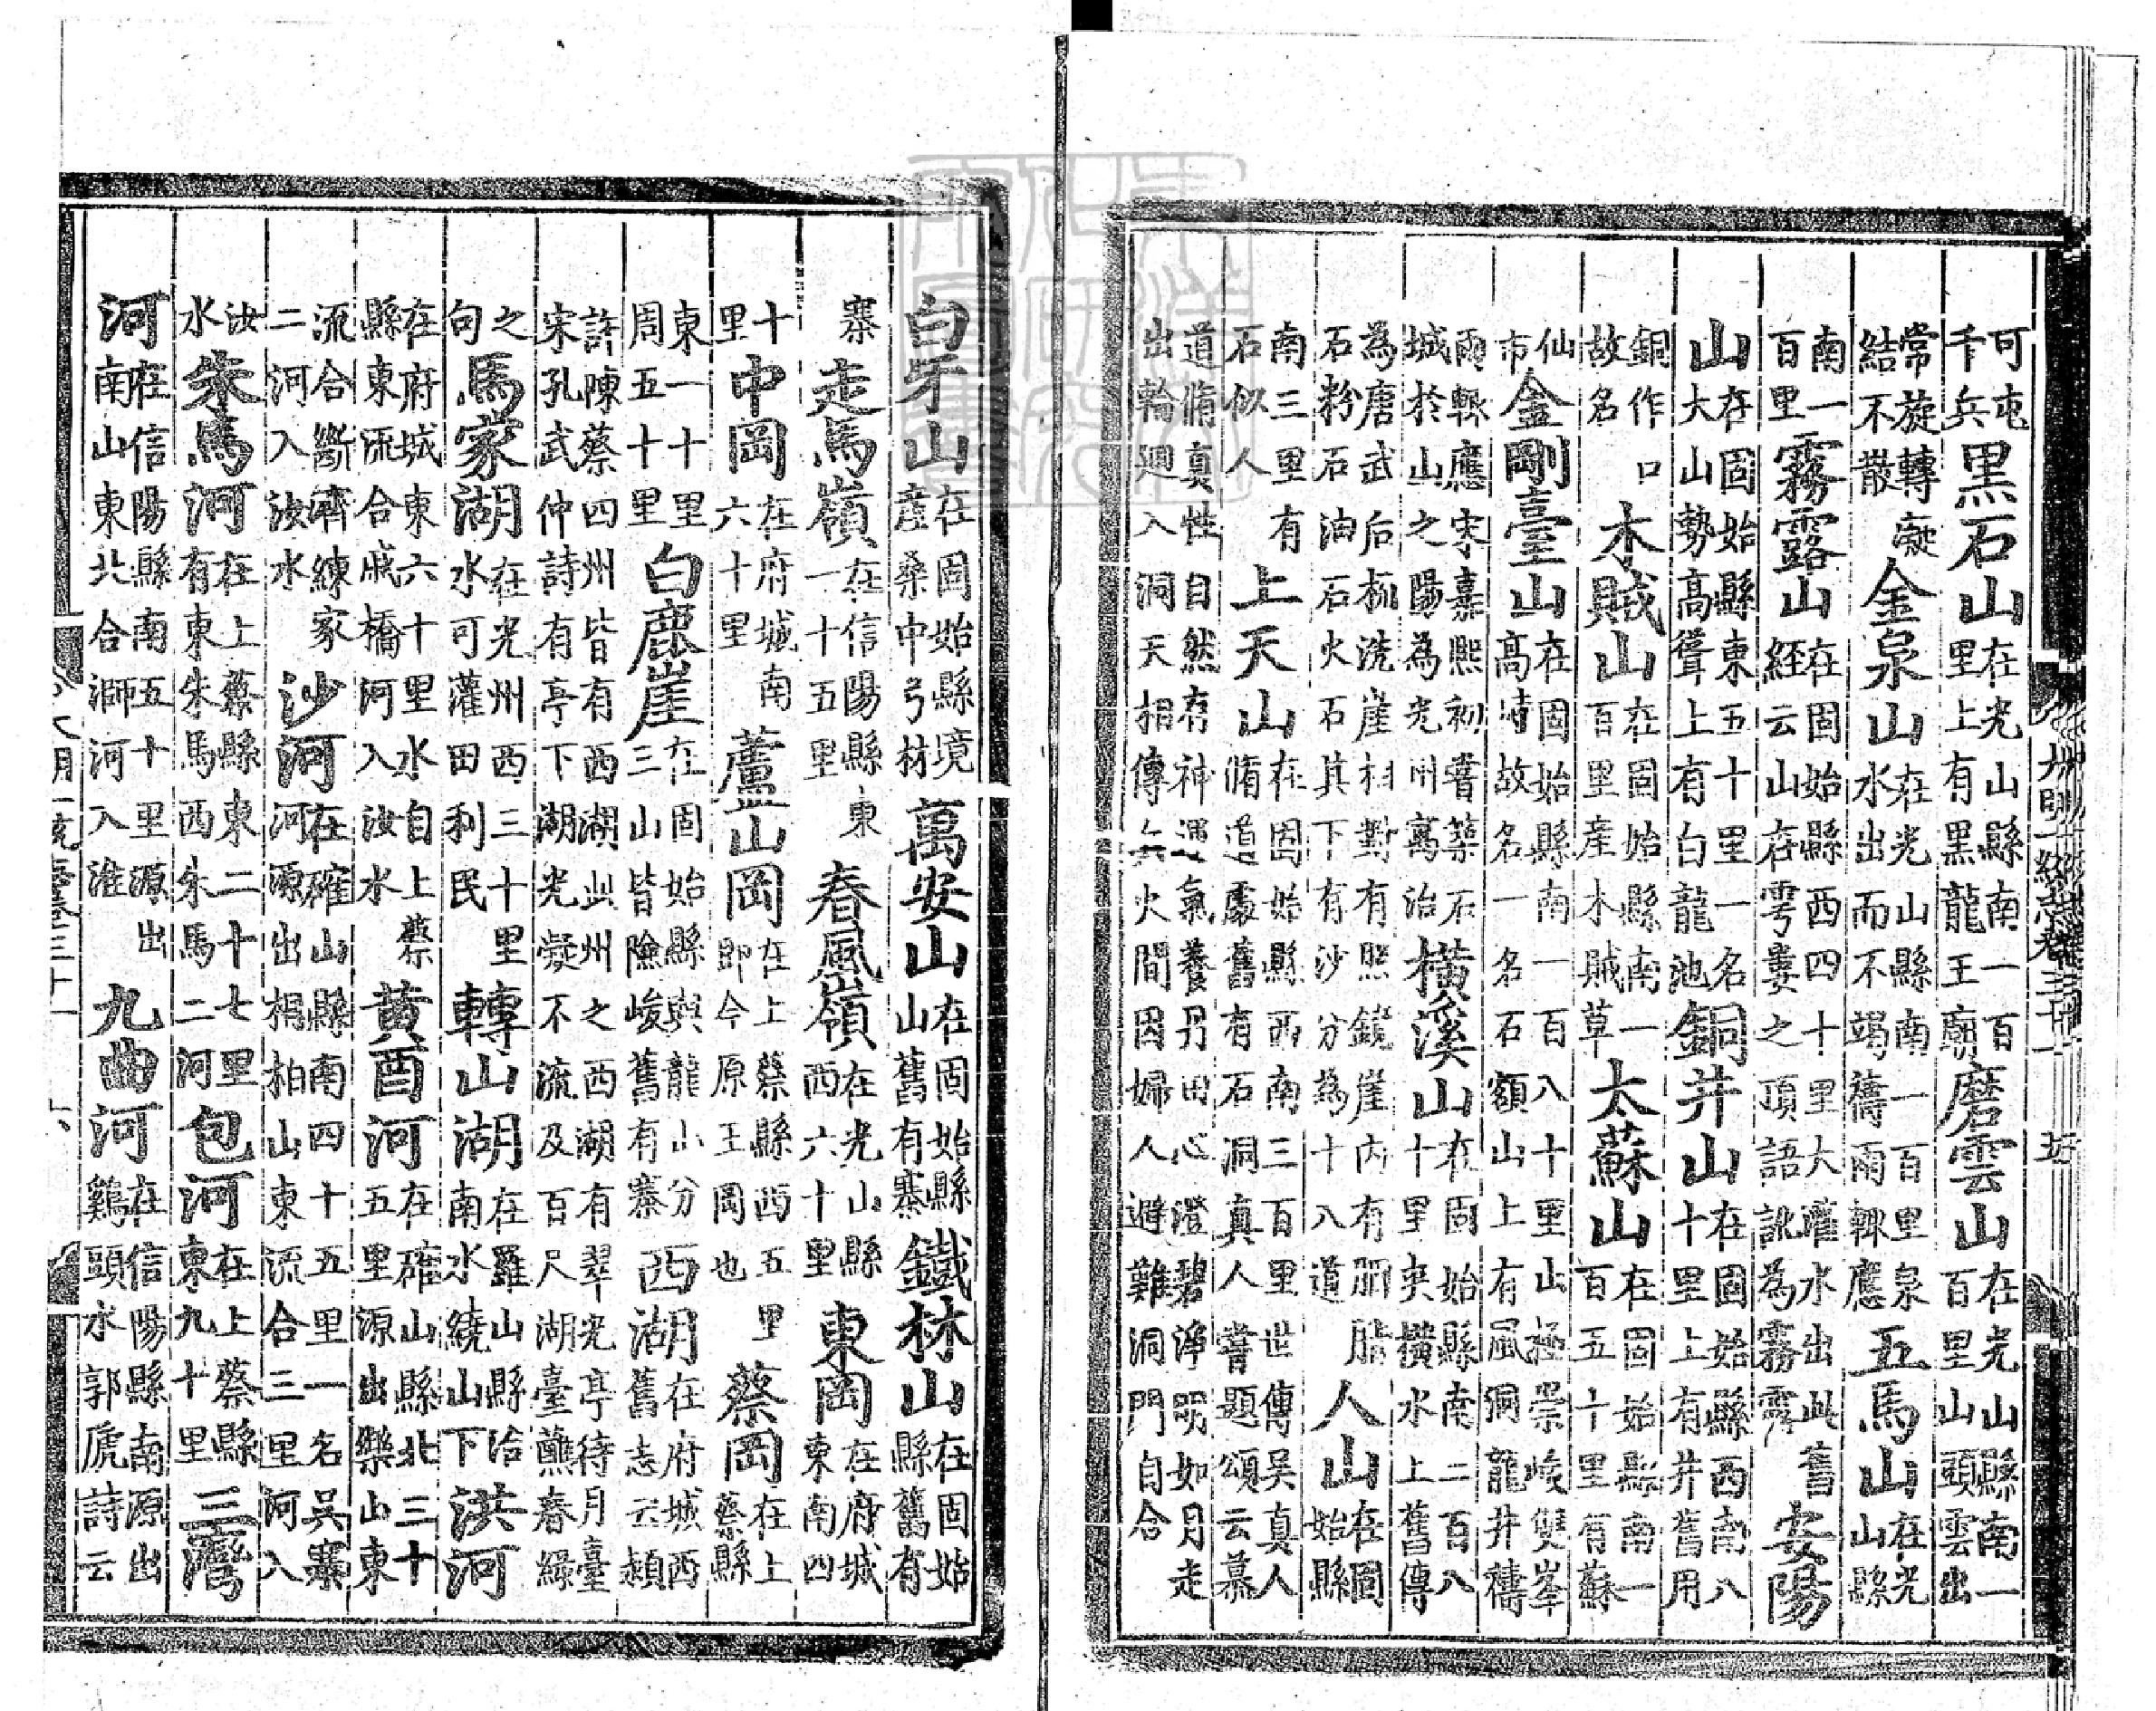 可屯千兵黑石山在光山縣南一百里上有黑龍王廟磨雲山在光山縣南一百里山頭雲出
常旋轉凝結不散金泉山在光山縣南一百里泉水出而不竭禱雨輙應五馬山在光山縣
南一百里霧露山在固始縣西四十里大灌水出此舊經云山在雩婁之頂語訛為霧露安陽
山在固始縣東五十里一名大山山勢高聳上有白龍池銅井山在固始縣西南八十里上有井舊用
銅作口故名木賊山在固始縣南一百里產木賊草太蘇山在固始縣南一百五十里有蘇
仙市金剛臺山在固始縣南一百八十里山極崇峻雙峯高峙故名一名石額山上有風洞龍井禱
雨輙應宋嘉熙初嘗築石城於山之陽為光州寓治橫溪山在固始縣南二百八十里夾橫水上舊傳
為唐武后梳洗崖相對有照鏡崖內有胭脂石粉石油石火石其下有沙分為十八道人山在固始縣
南三里有石似人上天山在固始縣西南三百里世傳吳真人脩道處舊有石洞真人嘗題頌云慕
道脩真性自然存神運氣養丹田心澄碧淨明如月走出輪迴入洞天相傳兵火間因婦人避難洞門自合
白牙山在固始縣境產桑中弓材萬安山在固始縣山舊有寨鐵林山在固始縣舊有
寨走馬嶺在信陽縣東一十五里春風嶺在光山縣西六十里東岡在府城東南四
十里中岡在府城南六十里蘆山岡在上蔡縣西五里即今原王岡也蔡岡在上蔡縣
東一十里周五十里白鹿崖在固始縣與龍山分三山皆險峻舊有寨西湖在府城西舊志云潁
許陳蔡四州皆有西湖此州之西湖有翠光亭待月臺宋孔武仲詩有亭下湖光凝不流及百尺湖臺蘸春綠
之句馬家湖在光州西三十里水可灌田利民轉山湖在羅山縣治南水繞山下洪河
在府城東六十里水自上蔡縣東流合戚橋河入汝水黃酉河在確山縣北三十五里源出樂山東
流合斷濟練家二河入汝水沙河在確山縣南四十五里一名吳寨河源出桐柏山東流合三里河入
汝水朱馬河在上蔡縣東二十七里有東朱馬西朱馬二河包河在上蔡縣東九十里三灣
河在信陽縣南五十里源出南山東北合溮河入淮九曲河在信陽縣南源出雞頭水郭虒詩云